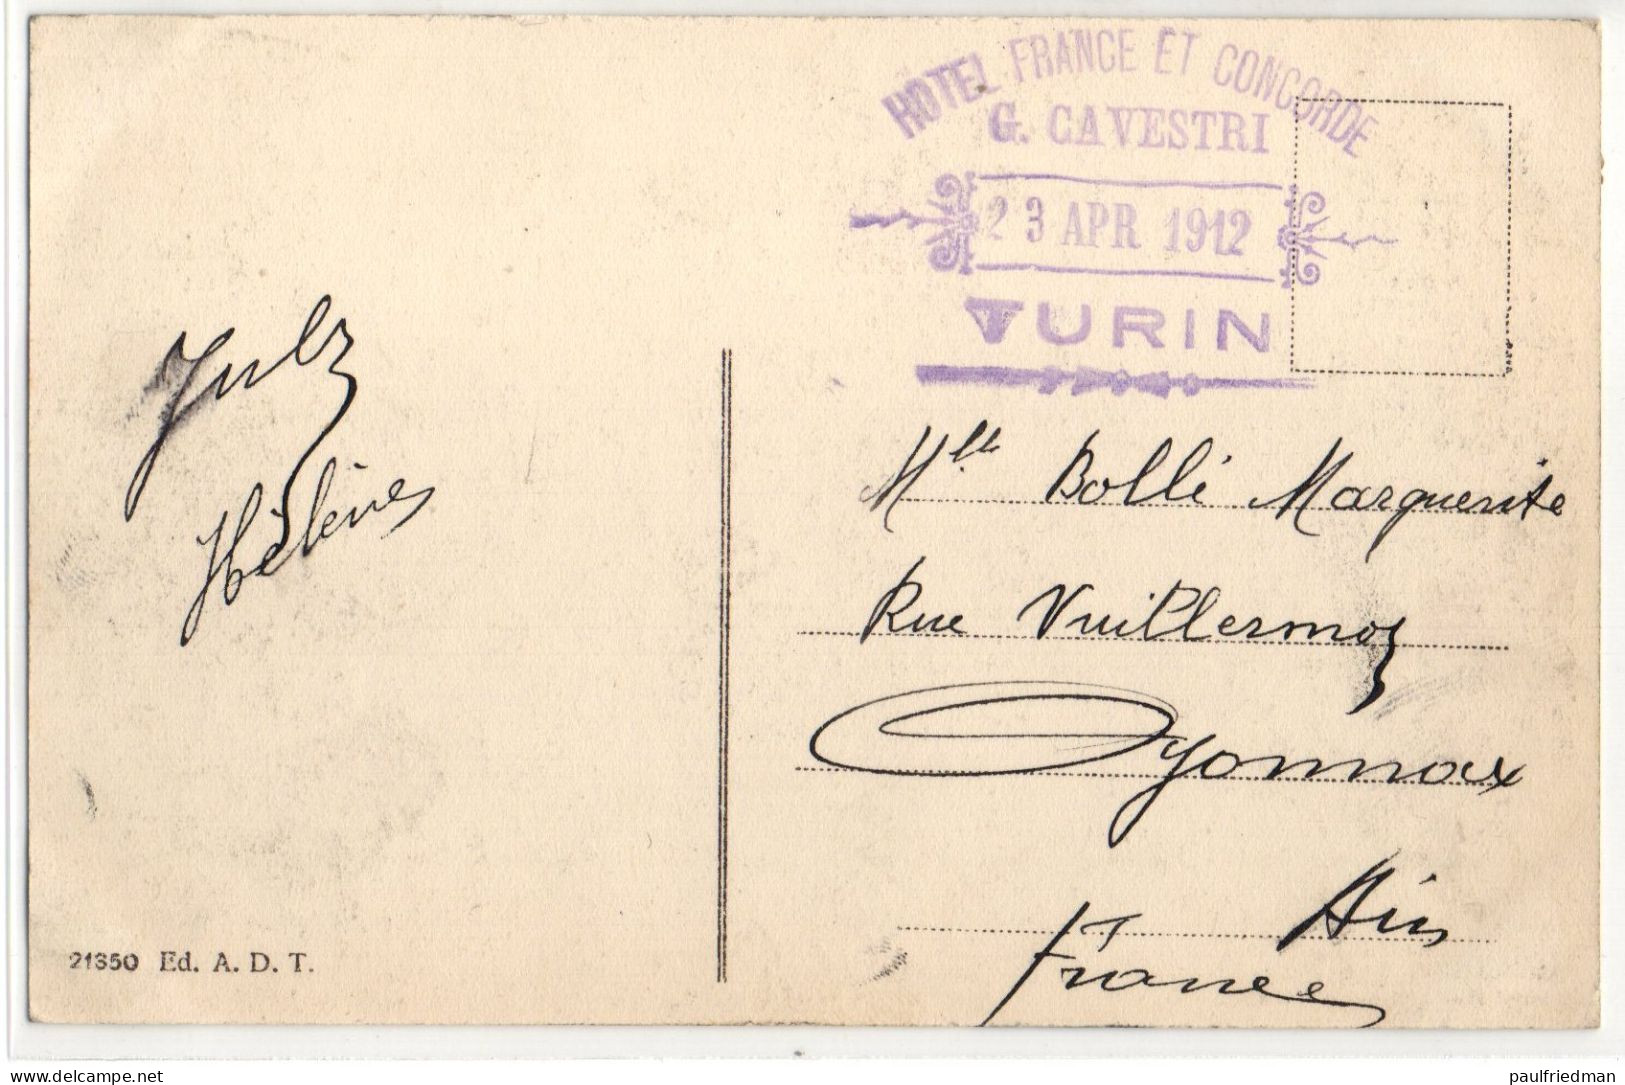 HOTEL FRANCE ET CONCORDE
G. CAVESTRI
23 APR 1912
TURIN
Hélène
Mlle Bolli Marguerite
Rue Vuillermoz
Oyonnax
Ain
France
21350 Ed. A. D. T.
delcampe.net
paulfriedman